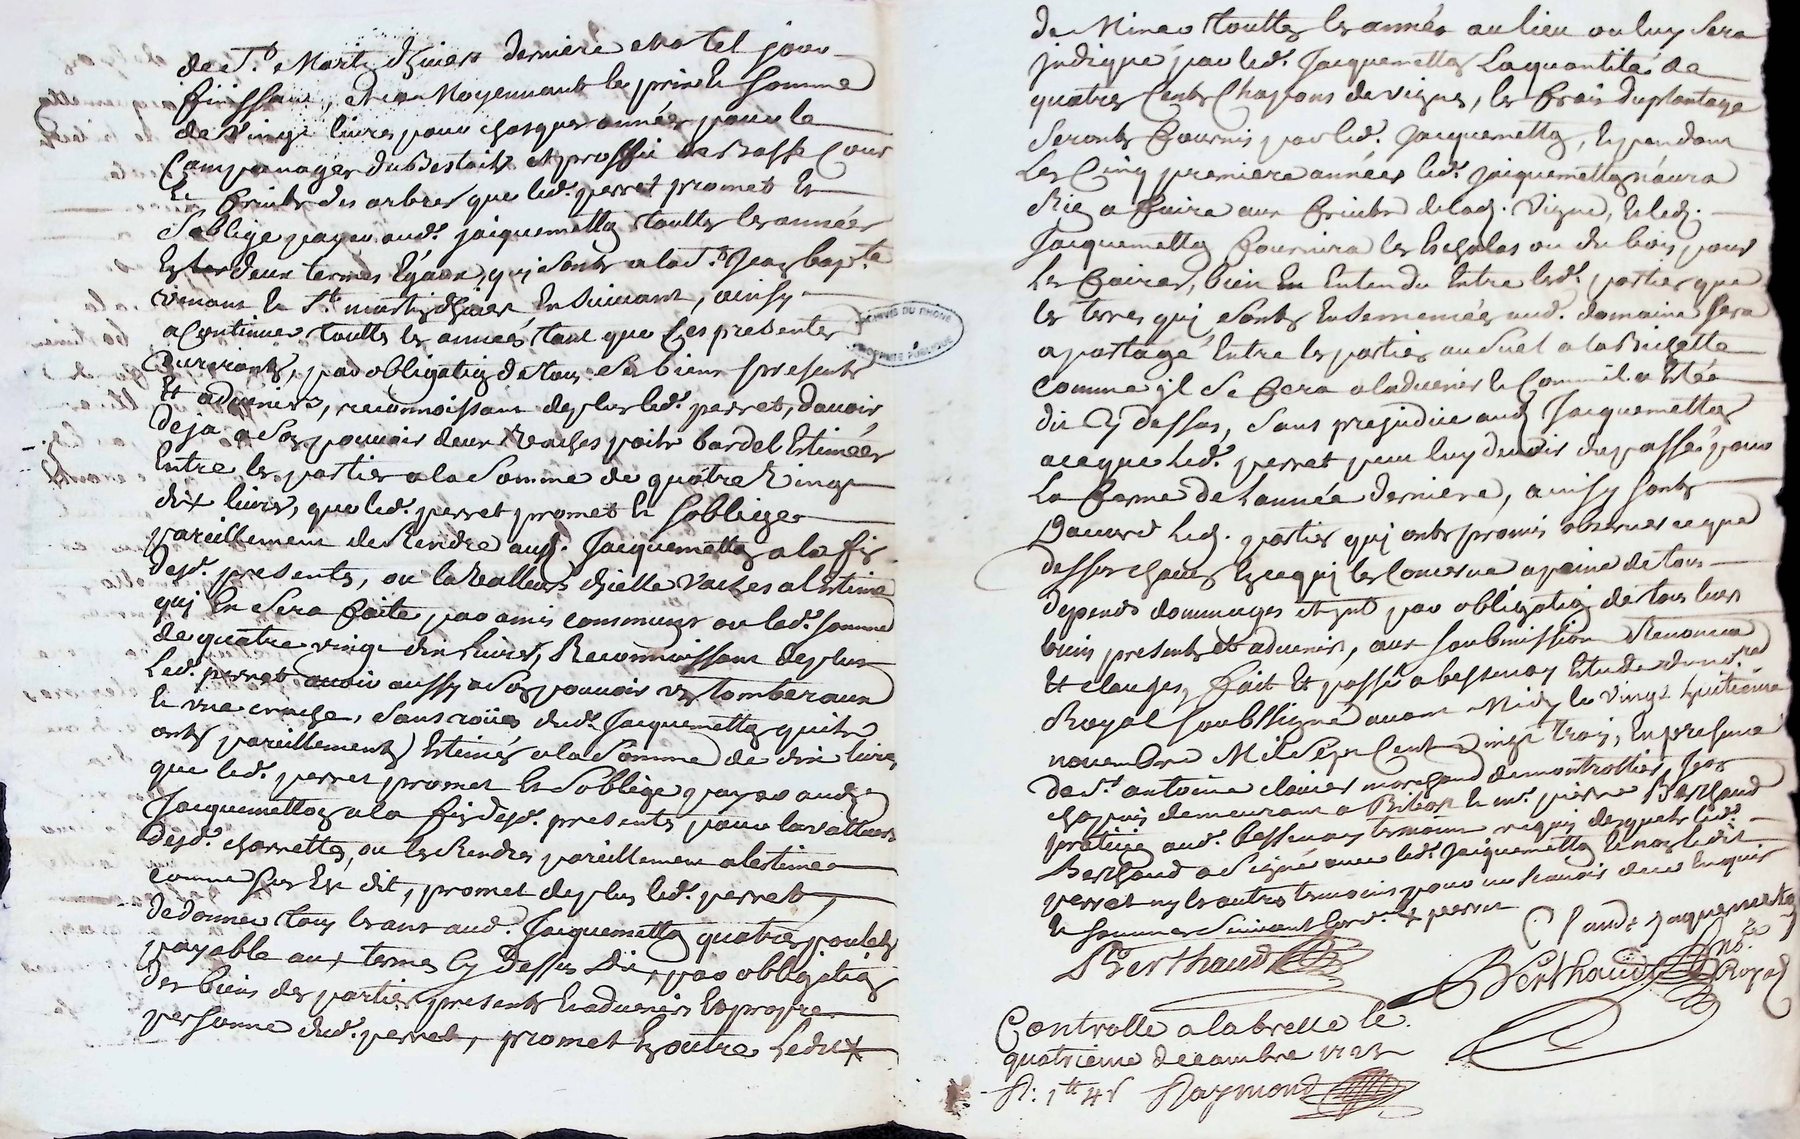 de St. Martin d'hiver derniere et a tel jour
finissant, et ce Moyennant le prix et somme
de Vingt livres pour chasques année pour le
Campanages du Bestails et proffit de Basse Cour
Et fruits des arbres que led. perret promet Et
s'oblige payer aud. jacquemetton touttes les années
En deux termes Egaux, quj sont a la St. Jean bapte.
venant Et St. martin d'hiver En Suivant, ainsy
a Continuer touttes les années tant que Ces presentes
Dureronts, par obligation de tous ses biens presents
Et advenirs, reconnoissant de plus led. perret, d'avoir
deja a Son pouvoir deux Vaches poils bardel Estimées
Entre les parties a la Somme de quatre Vingt
dix livres, que led. perret promet Et s'obliege
pareillement de Rendre aud. Jacquemetton a la fin
desd. presentes, ou la Valleurs d'jcelle Vaches a l'Estime
quj En Sera faite par amis communs ou lad. somme
de quatre vingt dix livres, Reconnoissant de plus
led. perret avoir aussy a Son pouvoir un tomberaux
Et une , Sans roües dud. Jacquemetton quils
onts pareillements Estimés a la Somme de dix livres
que led. perret promet Et S'oblige payer aud.
Jacquemetton a la fin desd. presentes pour la valleurs
desd. charrettes, ou les Rendres pareillement a l'estimee
comme sus Est dit, promet de plus led. perret,
de donner tous les ans aud. Jacquemetton quatres poulets
payable aux termes Cy dessus dit, par obligation
des biens des parties presents Et advenirs Et propre
personne dud. perret, promet En outre led.
de Miner touttes les années au lieu ou luy Sera
jndiqué par led. Jacquemetton La quantité de
quatres Cents Chapons de Vignes, les frais du plantage
Seronts fournis par led. Jacquemetton, Et pendant
Les Cinq premiere années led. jacquemetton n'aura
Rien a faire aux fruits de lad. Vigne, Et led.
Jacquemetton fournira les Eschalas ou du bois pour
les faires, bien En Entendu Entre lesd. parties que
les terres quj Sonts Ensemencées aud. domaine sera
apartagé Entre les parties
comme jl Se fera a l'advenirs Et Comme il a Estée
dit Cy dessus, Sans prejudice aud. Jacquemetton
a ce que led. perret peut luy devoir du passé pour
La ferme de l'année derniere, ainsy Sonts
D'accord led. parties quj onts promis observer ce que
dessus chacun En ce quj les Concerne a peine de tous
depends dommages par obligation de tous leurs
biens presents et advenirs, aux Soubmission Renoncia
Et clauses, fait Et passé a bessenay Etude du nore.
Royal Soubsigné avant Midy le vingt huitieme
novembre Mil Sept Cent Vingt trois, En presence
de Sr. antoine clavier marchand de montrottier, Jean
chapuis demeurant a Et mr. pierre Berthaud
praticien aud. bessenay temoins requis desquels led.
Berthaud a Signé avec led. jacquemetton Et non ledit
perret ny les autres temoins pour ne scavoir de ce Enquis
Et Sommes Suivant perret
Claude jaquemetton
PBerthaud
Berthaud nore. Royal
Controlle a la bresle le
quatrieme decembre 1723
R: 1tt 4s Raymond
ARCHIVES DU RHONE
PROPRIETE PUBLIQUE